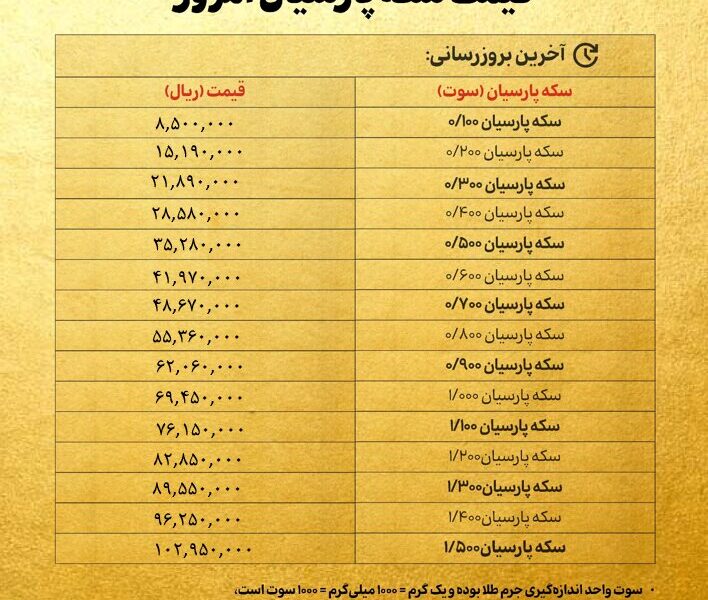 قیمت سکه پارسیان امروز
آخرین بروزرسانی:
سکه پارسیان (سوت) قیمت (ریال)
سکه پارسیان ۰/۱۰۰ ۸,۵۰۰,۰۰۰
سکه پارسیان ۰/۲۰۰ ۱۵,۱۹۰,۰۰۰
سکه پارسیان ۰/۳۰۰ ۲۱,۸۹۰,۰۰۰
سکه پارسیان ۰/۴۰۰ ۲۸,۵۸۰,۰۰۰
سکه پارسیان ۰/۵۰۰ ۳۵,۲۸۰,۰۰۰
سکه پارسیان ۰/۶۰۰ ۴۱,۹۷۰,۰۰۰
سکه پارسیان ۰/۷۰۰ ۴۸,۶۷۰,۰۰۰
سکه پارسیان ۰/۸۰۰ ۵۵,۳۶۰,۰۰۰
سکه پارسیان ۰/۹۰۰ ۶۲,۰۶۰,۰۰۰
سکه پارسیان ۱/۰۰۰ ۶۹,۴۵۰,۰۰۰
سکه پارسیان ۱/۱۰۰ ۷۶,۱۵۰,۰۰۰
سکه پارسیان۱/۲۰۰ ۸۲,۸۵۰,۰۰۰
سکه پارسیان۱/۳۰۰ ۸۹,۵۵۰,۰۰۰
سکه پارسیان۱/۴۰۰ ۹۶,۲۵۰,۰۰۰
سکه پارسیان۱/۵۰۰ ۱۰۲,۹۵۰,۰۰۰
• سوت واحد اندازه‌گیری جرم طلا بوده و یک گرم = ۱۰۰۰ میلی‌گرم = ۱۰۰۰ سوت است،